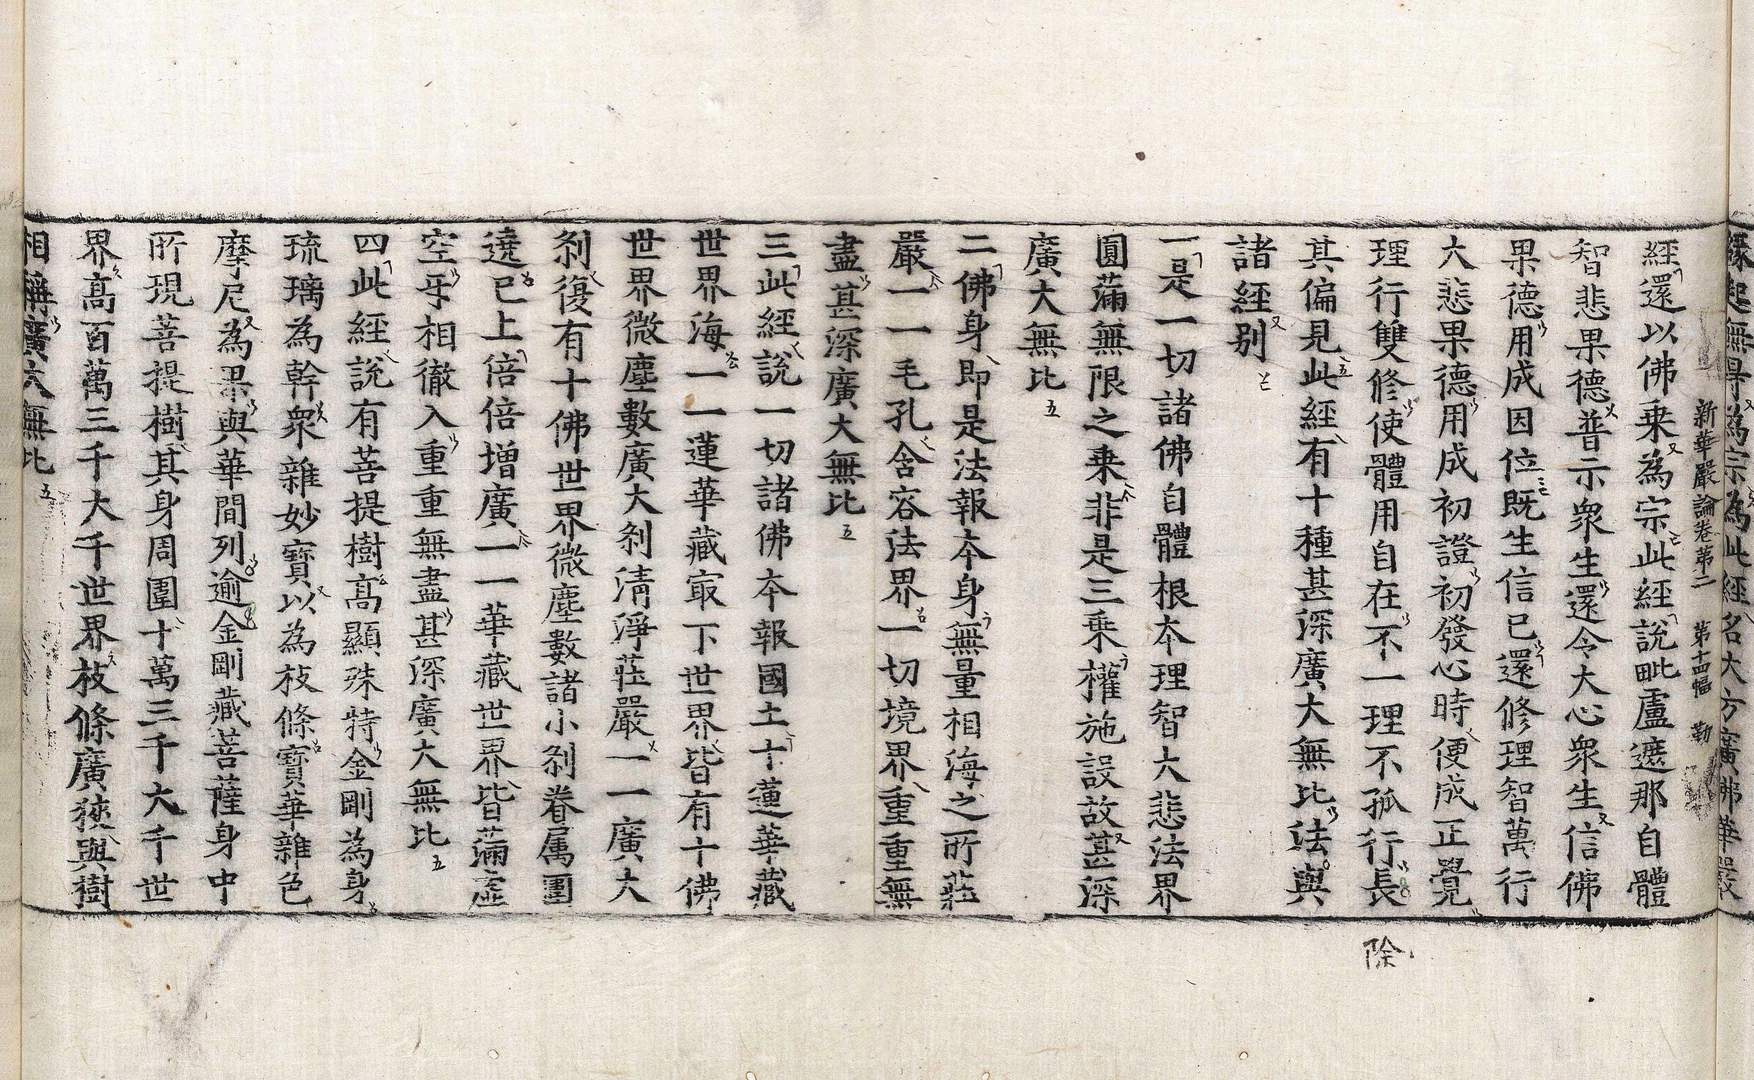 緣起無㝵為宗為此經名大方廣佛華嚴
新華嚴論卷第二 第十四幅 勒
經還以佛乗為宗此經說毗盧遮那自體
智悲果德普示衆生還令大心衆生信佛
果德用成因位旣生信已還修理智萬行
大悲果德用成初證初發心時便成正覺
理行雙修使體用自在不一理不孤行長
除
其偏見此經有十種甚深廣大無比法與
諸經别
一是一切諸佛自體根本理智大悲法界
圓滿無限之乗非是三乗權施設故甚深
廣大無比
二佛身即是法報本身無量相海之所莊
嚴一一毛孔含容法界一切境界重重無
盡甚深廣大無比
三此經說一切諸佛本報國土十蓮華藏
世界海一一蓮華藏㝡下世界皆有十佛
世界微塵數廣大刹清淨莊嚴一一廣大
刹復有十佛世界微塵數諸小刹眷属圍
遶已上倍倍增廣一一華藏世界皆滿虛
空乎相徹入重重無盡甚深廣大無比
四此經說有菩提樹髙顯殊特金剛為身
琉璃為幹衆雜妙寳以為枝條寳華雜色
摩尼為果與華間列逾金剛藏菩薩身中
所現菩提樹其身周圍十萬三千大千世
界髙百萬三千大千世界枝條廣狹與樹
相稱廣大無比